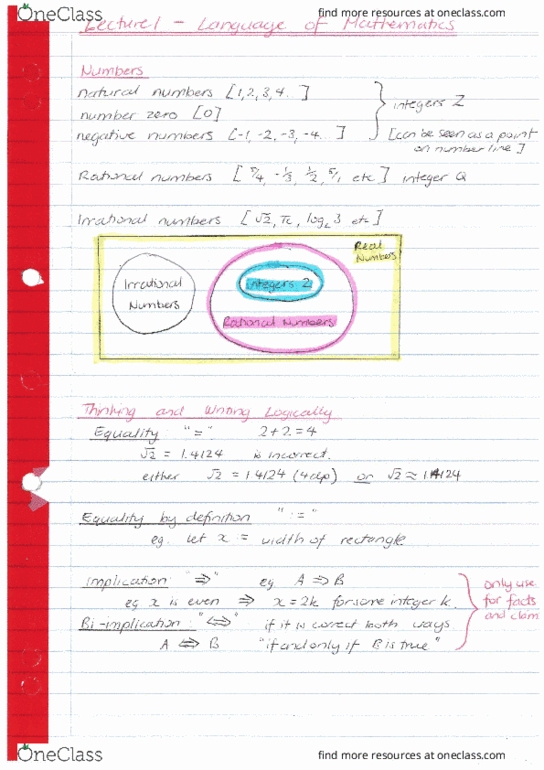 OneClass
find more resources at oneclass.com
Lecture 1 - Language of Mathematics
Numbers
natural numbers [1,2,3,4...]
number zero [0]
negative numbers [-1,-2,-3,-4...]
} integers Z
[can be seen as a point
on number line]
Rational numbers [5/4, -1/3, 1/2, 5/1 etc] integer Q
Irrational numbers [√2, π, log₂3 etc]
Real
Numbers
Irrational
Numbers
Integers Z
Rational Numbers
Thinking and Writing Logically
Equality "=" 2+2=4
√2 = 1.4124 is incorrect.
either √2 = 1.4124 (4dp) or √2 ≈ 1.4124
Equality by definition ":="
eg. let x := width of rectangle
Implication "⇒" eg. A ⇒ B
eg x is even ⇒ x=2k for some integer k.
Bi-implication: "⇔" if it is correct both ways
A ⇔ B "if and only if B is true"
only use
for facts
and claim
OneClass
find more resources at oneclass.com